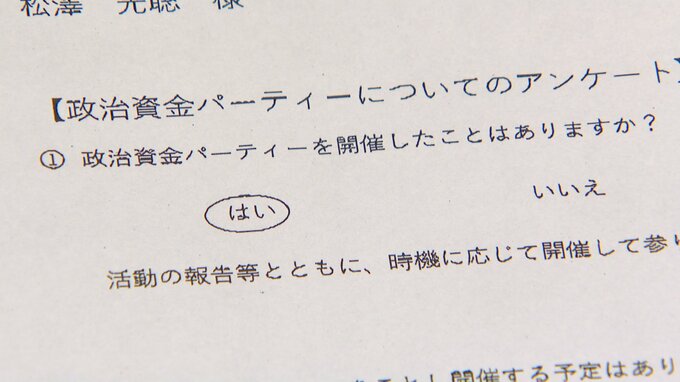 松澤 光聡 様
【政治資金パーティーについてのアンケート】
① 政治資金パーティーを開催したことはありますか？
はい いいえ
活動の報告等とともに、時機に応じて開催して参り
開催する予定はあり